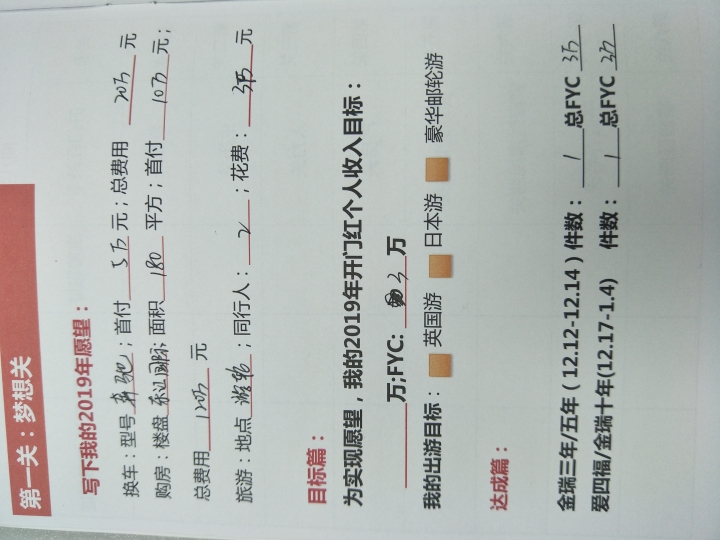 第一关：梦想关
写下我的2019年愿望：
换车：型号奔驰；首付5万元；总费用20万元
购房：楼盘国际；面积180平方；首付10万元；
总费用120万元
旅游：地点游轮；同行人：2；花费：3万元
目标篇：
为实现愿望，我的2019年开门红个人收入目标：
万;FYC: 3万
我的出游目标： 英国游 日本游 豪华邮轮游
达成篇：
金瑞三年/五年（12.12-12.14）件数：1总FYC 3万
爱四福/金瑞十年(12.17-1.4) 件数：1总FYC 2万